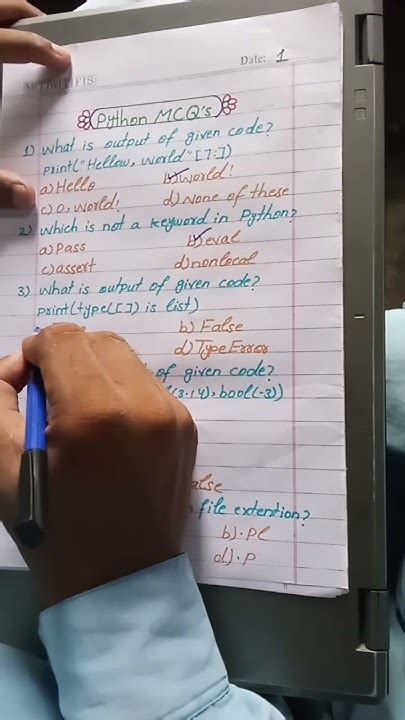 Date: 1
Python MCQ's
1) What is output of given code?
print("Hellow, world"[7:])
a) Hello b) world!
c) o, world! d) None of these
2) which is not a keyword in Python?
a) Pass b) eval
c) assert d) nonlocal
3) what is output of given code?
print(type([]) is list)
b) False
d) TypeError
of given code?
(3.14), bool(-3))
alse
file extention?
b) .pl
d) .p